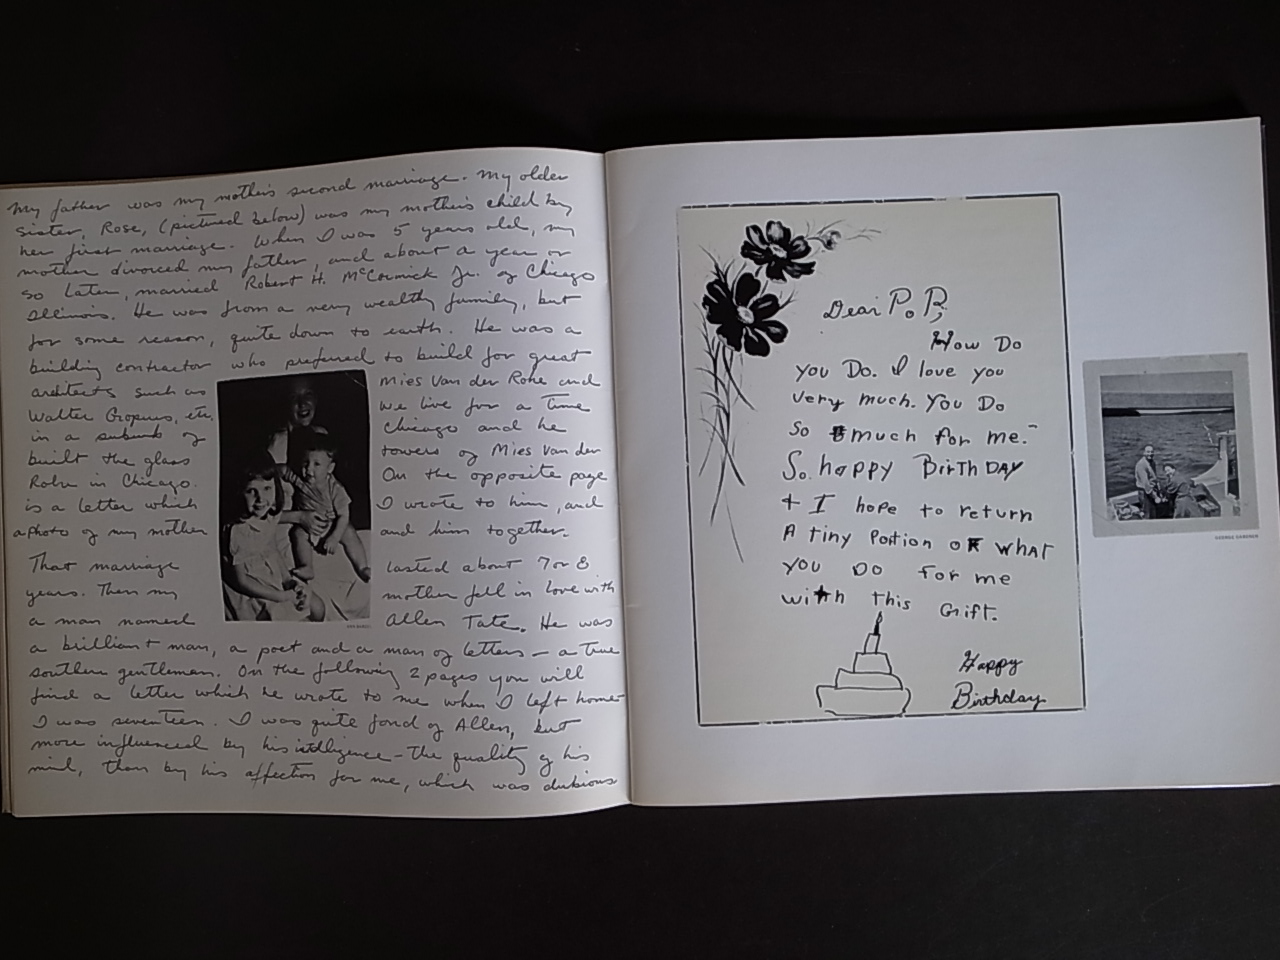 My father was my mother's second marriage. My older
sister, Rose, (pictured below) was my mother's child by
her first marriage. When I was 5 years old, my
mother divorced my father and about a year or
so later, married Robert H. McCormick Jr. of Chicago
Illinois. He was from a very wealthy family, but
for some reason, quite down to earth. He was a
building contractor who preferred to build for great
architects such as Mies Van der Rohe and
Walter Gropius, etc. We live for a time
in a suburb of Chicago and he
built the glass towers of Mies Van der
Rohe in Chicago. On the opposite page
is a letter which I wrote to him, and
a photo of my mother and him together.
That marriage lasted about 7 or 8
years. Then my mother fell in love with
a man named Allen Tate. He was
a brilliant man, a poet and a man of letters — a true
southern gentleman. On the following 2 pages you will
find a letter which he wrote to me when I left home
I was seventeen. I was quite fond of Allen, but
more influenced by his intelligence — the quality of his
mind, than by his affection for me, which was dubious
Dear P.P,
How Do
you Do. I love you
very much. You Do
so much for me.
So. happy BirthDAY
+ I hope to return
A tiny Portion of what
you DO for me
with this Grift.
Happy
Birthday
GEORGE GARDNER